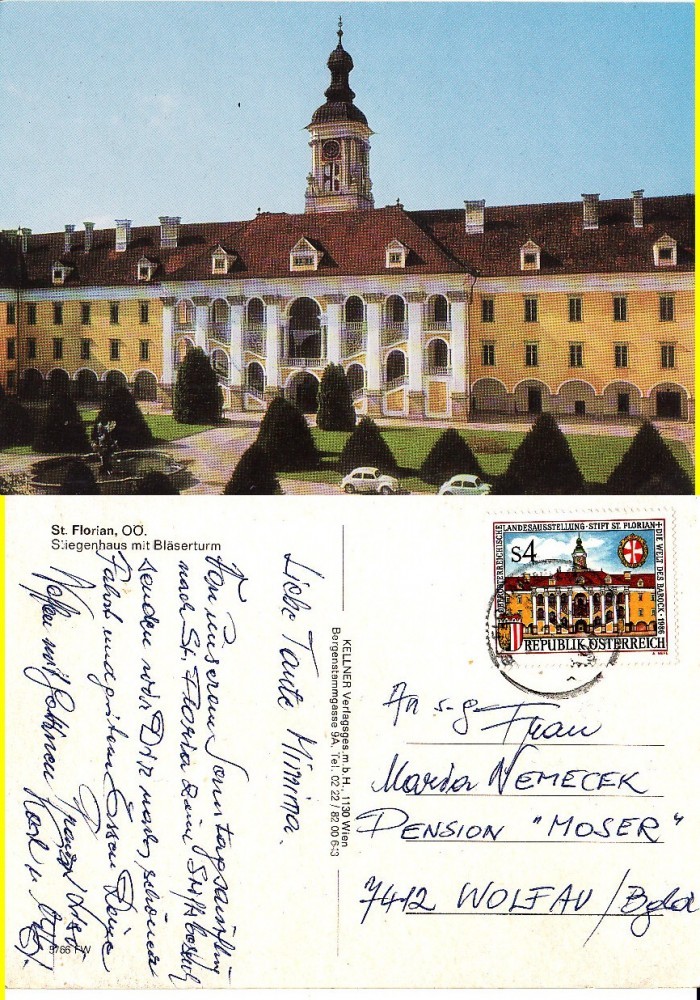 St. Florian, OÖ.
Stiegenhaus mit Bläserturm
Liebe Tante Minina.
Von unserem Sonntagsausflug
nach St. Florian zum Stiftsbesuch
senden wir Dir nach schöner
Fahrt und gutem Essen Deine
Neffen mit Gattinnen
Karl u.
5766 FW
KELLNER Verlagsges.m.b.H., 1130 Wien
Bergenstammgasse 9A, Tel. 02 22 / 82 00 6-3
OBERÖSTERREICHISCHE LANDESAUSSTELLUNG · STIFT ST. FLORIAN
DIE WELT DES BAROCK · 1986
S4
REPUBLIK ÖSTERREICH
An s.g. Frau
Maria NEMECEK
PENSION "MOSER"
7412 WOLFAU / Bgld